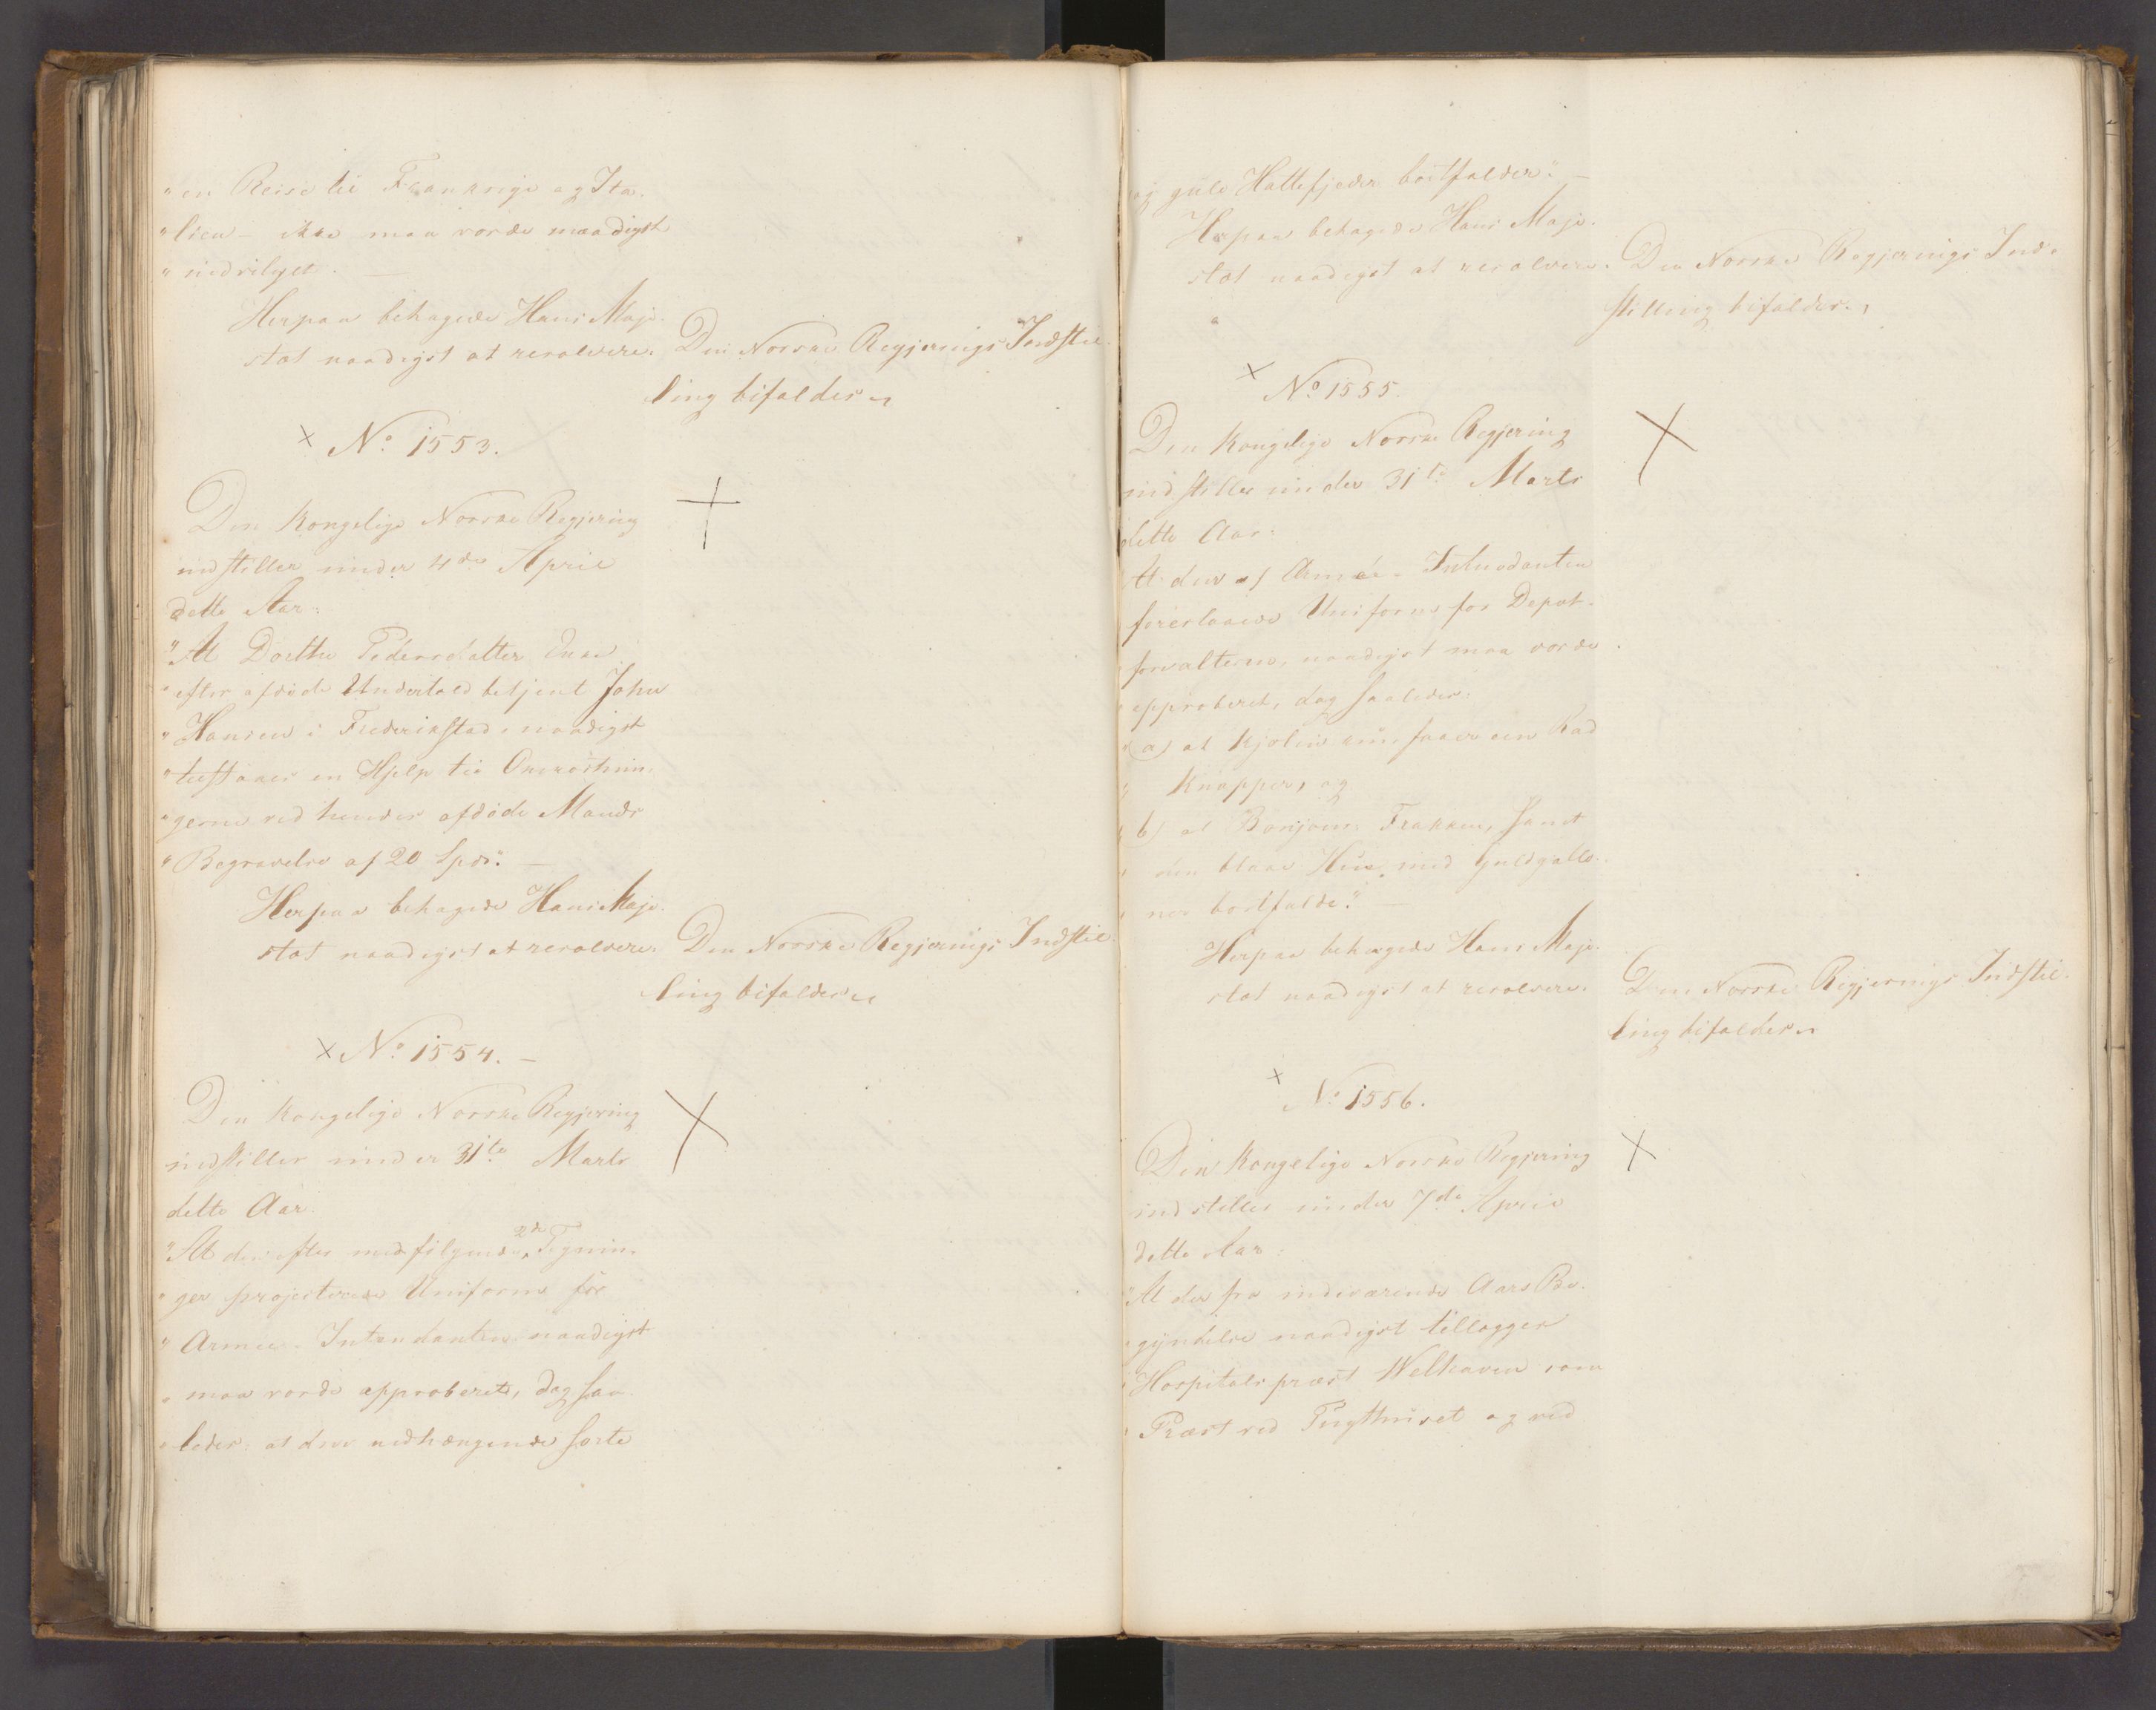 "en Reise til Frankrige og Ita-
"lien - ikke maa vorde naadigst
"indvilget. —
Herpaa behagede Hans Maje-
stæt naadigst at resolvere: Den Norske Regjerings Indstil-
ling bifaldes
× No 1553.
Den Kongelige Norske Regjering
indstiller under 4de April
dette Aar:
"At Dorthe Pedersdatter Enke
"efter afdøde Undertoldbetjent John
"Hansen i Frederikstad, naadigst
"tilstaaes en Hjelp til Omkostnin-
"gerne ved hendes afdøde Mands
"Begravelse af 20 Spd". —
Herpaa behagede Hans Maje-
stæt naadigst at resolvere: Den Norske Regjerings Indstil-
ling bifaldes
× No 1554. —
Den Kongelige Norske Regjering
indstiller under 31te Marts
dette Aar:
"At den efter medfølgende 2de Tegnin-
"ger projecterede Uniform for
"Armee-Intendanten naadigst
"maa vorde approberet, dog saa-
"ledes: at den nedhængende sorte
og gule Hattefjeder bortfalder". —
Herpaa behagede Hans Maje-
stæt naadigst at resolvere: Den Norske Regjerings Ind-
stilling bifaldes
× No 1555.
Den Kongelige Norske Regjering
indstiller under 31te Marts
dette Aar:
At den af Armée-Intendanten
foreslaaede Uniform for Depot-
forvalterne, naadigst maa vorde
approberet, dog saaledes:
a) at Kjolen kun faaer een Rad
" Knapper, og
b) at Bonjour Frakken, samt
den blaae Hue med Guldgallo-
ner bortfalde". —
Herpaa behagede Hans Maje-
stæt naadigst at resolvere: Den Norske Regjerings Indstil-
ling bifaldes
× No 1556.
Den Kongelige Norske Regjering
indstiller under 7de April
dette Aar:
"At der fra indeværende Aars Be-
gyndelse naadigst tillægges
Hospitalspræst Welhaven som
Præst ved Tugthuset og ved